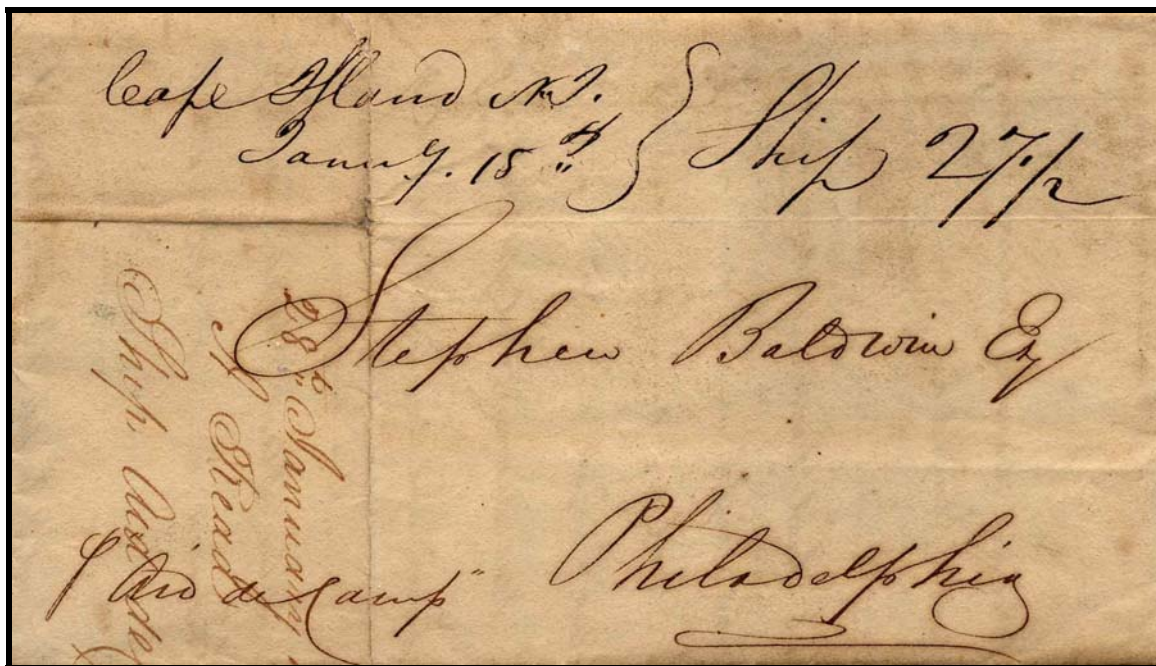 Cape Island N.J.
Januy. 15th } Ship 27/2
Stephen Baldwin Esq
Philadelphia
p "Aid de Camp"
28th January
Read
Ship. Aid de